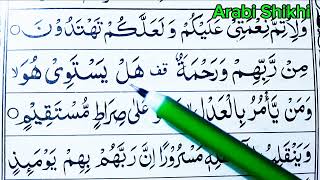 Arabi Shikhi
وَلِاُتِمَّ نِعْمَتِىْ عَلَيْكُمْ وَلَعَلَّكُمْ تَهْتَدُوْنَ ○
مِنْ رَّبِّهِمْ وَرَحْمَةٌ قف هَلْ يَسْتَوِىْ هُوَ لا
وَمَنْ يَّاْمُرُ بِالْعَدْلِ عَلٰى صِرَاطٍ مُّسْتَقِيْمٍ ○
وَيَنْقَلِبُ مَسْرُوْرًا اِنَّ رَبَّهُمْ بِهِمْ يَوْمَئِذٍ